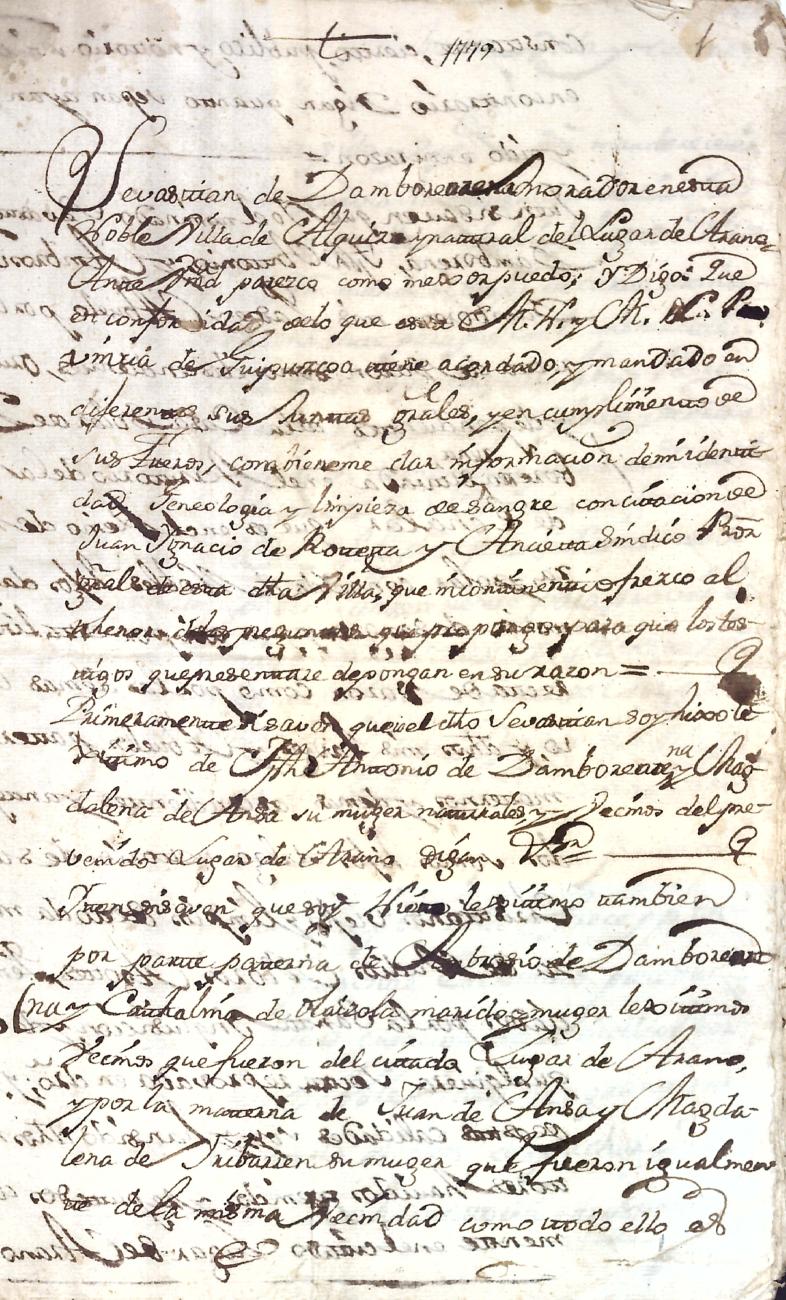 1779 1
Sevastian de Damborearena morador en esta
Noble Villa de Alquiza y natural del Lugar de Arano
Ante Vmd parezco como mexor puedo; y Digo: Que
en conformidad de lo que esta M. N. y M. L. Pro
vincia de Guipuzcoa tiene acordado y mandado en
diferentes sus Juntas Grales, y en cumplimiento de
sus Fueros, combieneme dar informacion de mi identi
dad Geneologia y limpieza de sangre con citacion de
Juan Ignacio de Roteta y Ancieta Sindico Pror
gral de esta dha Villa, que incontinenti ofrezco al
thenor de las preguntas que propongo para que los tes-
tigos que presentare depongan en su razon =
Primeramente si saven que io el dho Sevastian soy hixo le
xitimo de Jph Antonio de Damborearena y Mag-
dalena de Ansa su muger naturales y Vecinos del pre-
venido Lugar de Arano digan
Iten si saven que soy Nieto lexitimo tambien
por parte paterna de Ambrosio de Damborea
na y Cathalina de Olaizola marido y muger lexitimos
Vecinos que fueron del citado Lugar de Arano,
y por la materna de Juan de Ansa y Magda-
lena de Iribarren su muger que fueron igualmen
te de la misma Vecindad como todo ello es